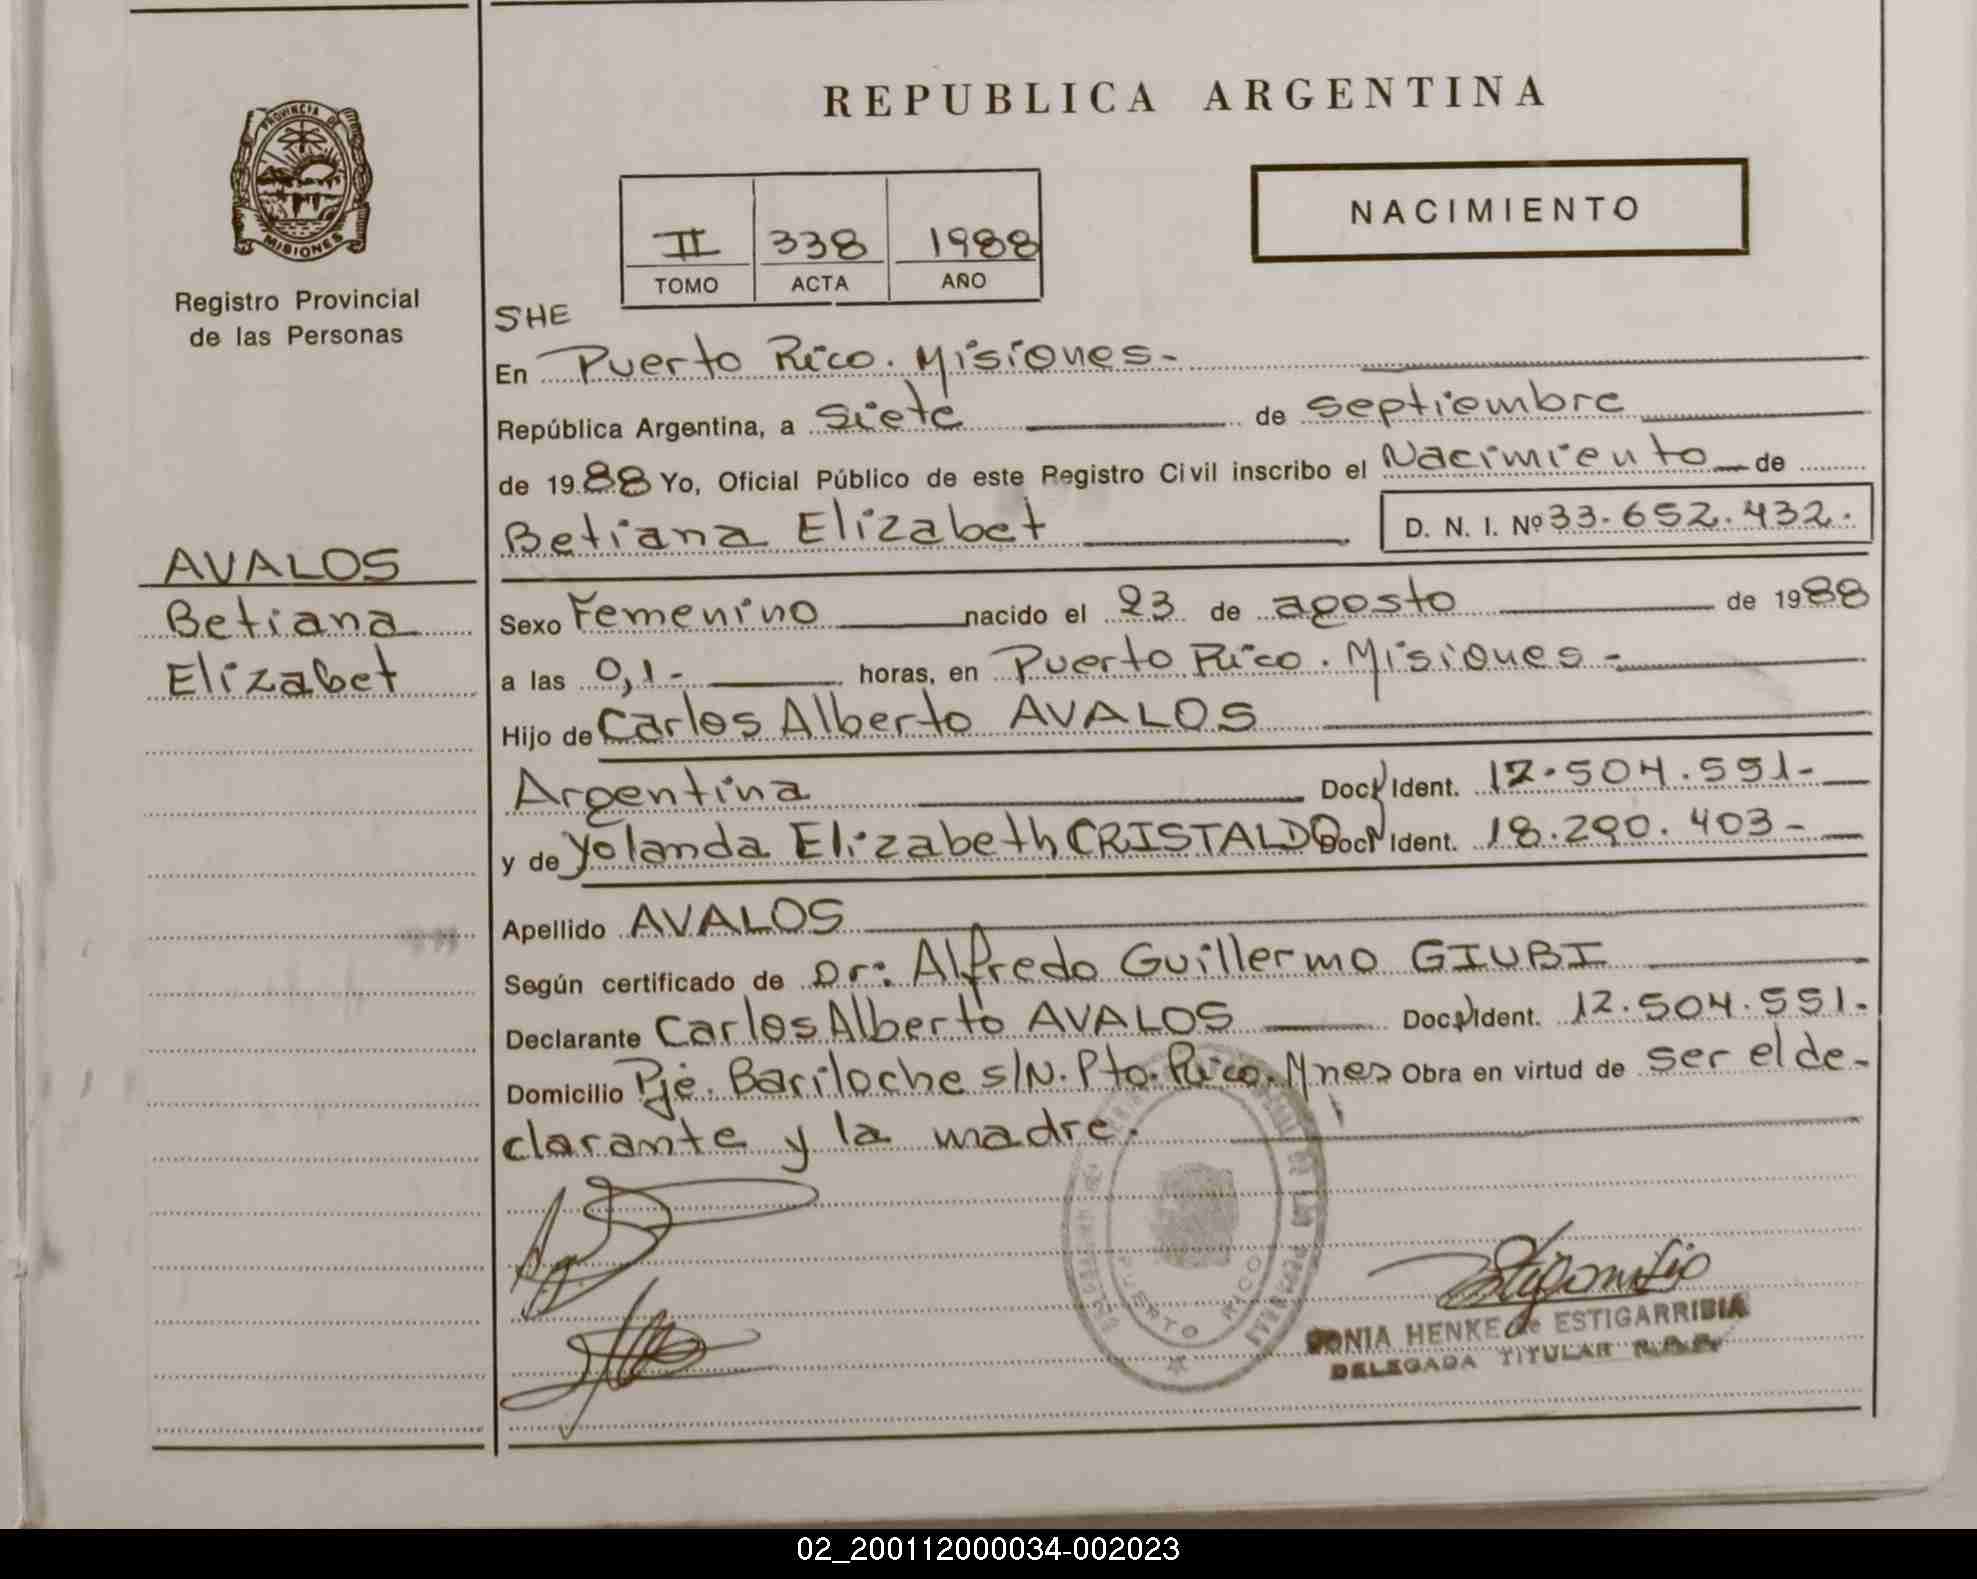 REPUBLICA ARGENTINA
PROVINCIA DE
MISIONES
Registro Provincial
de las Personas
NACIMIENTO
II 338 1988
TOMO ACTA AÑO
SHE
En Puerto Rico. Misiones-
República Argentina, a Siete de septiembre
de 1988 Yo, Oficial Público de este Registro Civil inscribo el Nacimiento de
Betiana Elizabet D. N. I. Nº 33.652.432.
AVALOS
Betiana
Elizabet
Sexo Femenino nacido el 23 de agosto de 1988
a las 0,1- horas, en Puerto Rico. Misiones-
Hijo de Carlos Alberto AVALOS
Argentina Doc. Ident. 12.504.551-
y de Yolanda Elizabeth CRISTALDO Doc. Ident. 18.290.403-
Apellido AVALOS
Según certificado de Dr: Alfredo Guillermo GIUBI
Declarante Carlos Alberto AVALOS Doc. Ident. 12.504.551-
Domicilio Pje. Bariloche s/N. Pto. Rico. Mnes Obra en virtud de ser el de-
clarante y la madre.
PUERTO RICO
SONIA HENKE de ESTIGARRIBIA
DELEGADA TITULAR
02_200112000034-002023